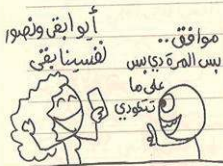 أيوا بقى ونصور
نفسينا بقى
موافق..
بس المرة دي بس
على ما
تتعودي